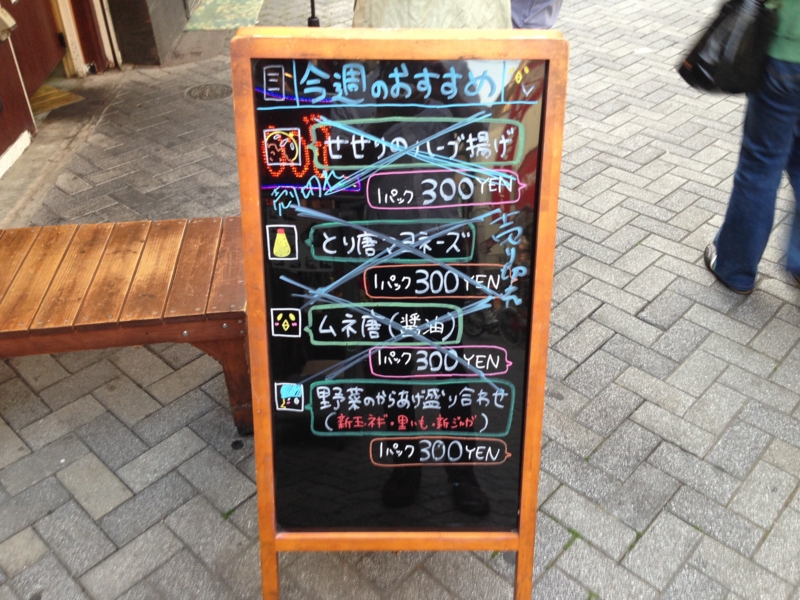 今週のおすすめ
せせりのハーブ揚げ
1パック 300YEN
売り切れ
とり唐マヨネーズ
売り切れ
1パック 300YEN
ムネ唐(醤油)
1パック 300YEN
野菜のからあげ盛り合わせ
(新玉ネギ・里いも・新ジャガ)
1パック 300YEN